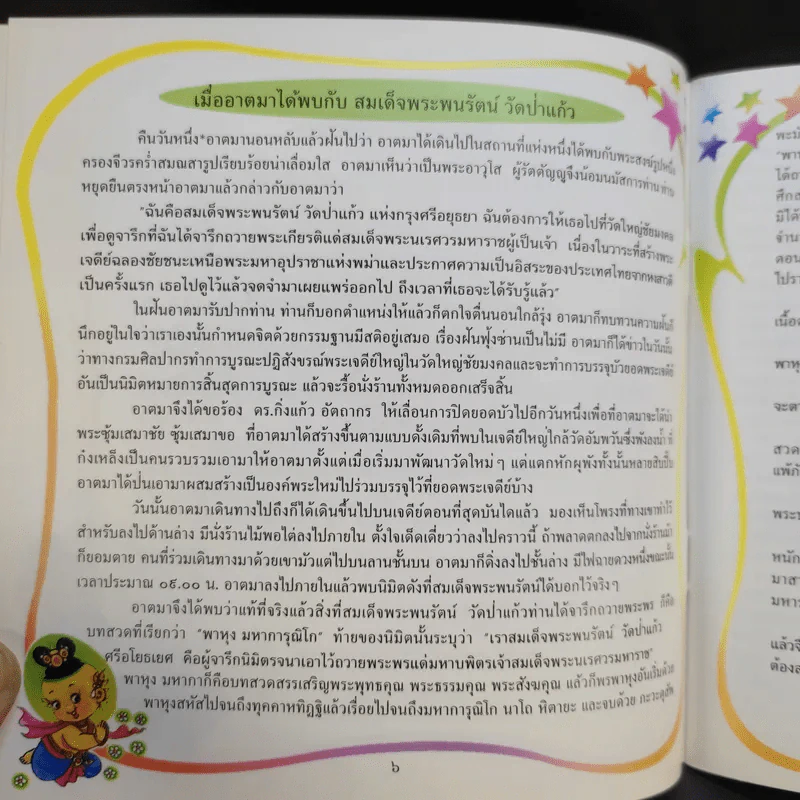 เมื่ออาตมาได้พบกับ สมเด็จพระพนรัตน์ วัดป่าแก้ว
คืนวันหนึ่ง*อาตมานอนหลับแล้วฝันไปว่า อาตมาได้เดินไปในสถานที่แห่งหนึ่งได้พบกับพระสงฆ์รูปหนึ่ง
ครองจีวรคร่ำสมณสารูปเรียบร้อยน่าเลื่อมใส อาตมาเห็นว่าเป็นพระอาวุโส ผู้รัตตัญญูจึงน้อมนมัสการท่าน ท่าน
หยุดยืนตรงหน้าอาตมาแล้วกล่าวกับอาตมาว่า
"ฉันคือสมเด็จพระพนรัตน์ วัดป่าแก้ว แห่งกรุงศรีอยุธยา ฉันต้องการให้เธอไปที่วัดใหญ่ชัยมงคล
เพื่อดูจารึกที่ฉันได้จารึกถวายพระเกียรติแด่สมเด็จพระนเรศวรมหาราชผู้เป็นเจ้า เนื่องในวาระที่สร้างพระ
เจดีย์ฉลองชัยชนะเหนือพระมหาอุปราชาแห่งพม่าและประกาศความเป็นอิสระของประเทศไทยจากหงสาวดี
เป็นครั้งแรก เธอไปดูไว้แล้วจดจำมาเผยแพร่ออกไป ถึงเวลาที่เธอจะได้รับรู้แล้ว"
ในฝันอาตมารับปากท่าน ท่านก็บอกตำแหน่งให้แล้วก็ตกใจตื่นนอนใกล้รุ่ง อาตมาก็ทบทวนความฝันก็
นึกอยู่ในใจว่าเราเองนั้นกำหนดจิตด้วยกรรมฐานมีสติอยู่เสมอ เรื่องฝันฟุ้งซ่านเป็นไม่มี อาตมาก็ได้ข่าวในวันนั้น
ว่าทางกรมศิลปากรทำการบูรณะปฏิสังขรณ์พระเจดีย์ใหญ่ในวัดใหญ่ชัยมงคลและจะทำการบรรจุบัวยอดพระเจดีย์
อันเป็นนิมิตหมายการสิ้นสุดการบูรณะ แล้วจะรื้อนั่งร้านทั้งหมดออกเสร็จสิ้น
อาตมาจึงได้ขอร้อง ดร.กิ่งแก้ว อัตถากร ให้เลื่อนการปิดยอดบัวไปอีกวันหนึ่งเพื่อที่อาตมาจะได้นำ
พระซุ้มเสมาชัย ซุ้มเสมาขอ ที่อาตมาได้สร้างขึ้นตามแบบดั้งเดิมที่พบในเจดีย์ใหญ่ใกล้วัดอัมพวันซึ่งพังลงน้ำ ที่
ก๋งเหล็งเป็นคนรวบรวมเอามาให้อาตมาตั้งแต่เมื่อเริ่มมาพัฒนาวัดใหม่ๆ แต่แตกหักผุพังทั้งนั้นหลายสิบปี๊บ
อาตมาได้ป่นเอามาผสมสร้างเป็นองค์พระใหม่ไปร่วมบรรจุไว้ที่ยอดพระเจดีย์บ้าง
วันนั้นอาตมาเดินทางไปถึงก็ได้เดินขึ้นไปบนเจดีย์ตอนที่สุดบันไดแล้ว มองเห็นโพรงที่ทางเขาทำไว้
สำหรับลงไปด้านล่าง มีนั่งร้านไม้พอไต่ลงไปภายใน ตั้งใจเด็ดเดี่ยวว่าลงไปคราวนี้ ถ้าพลาดตกลงไปจากนั่งร้านม้า
ก็ยอมตาย คนที่ร่วมเดินทางมาด้วยเขามัวแต่ไปบนลานชั้นบน อาตมาก็ดิ่งลงไปชั้นล่าง มีไฟฉายดวงหนึ่งขณะนั้น
เวลาประมาณ ๐๙.๐๐ น. อาตมาลงไปภายในแล้วพบนิมิตดังที่สมเด็จพระพนรัตน์ได้บอกไว้จริงๆ
อาตมาจึงได้พบว่าแท้ที่จริงแล้วสิ่งที่สมเด็จพระพนรัตน์ วัดป่าแก้วท่านได้จารึกถวายพระพร ก็คือ
บทสวดที่เรียกว่า "พาหุง มหาการุณิโก" ท้ายของนิมิตนั้นระบุว่า "เราสมเด็จพระพนรัตน์ วัดป่าแก้ว
ศรีอโยธเยศ คือผู้จารึกนิมิตรจนาเอาไว้ถวายพระพรแด่มหาบพิตรเจ้าสมเด็จพระนเรศวรมหาราช"
พาหุง มหากาก็คือบทสวดสรรเสริญพระพุทธคุณ พระธรรมคุณ พระสังฆคุณ แล้วก็พรพาหุงอันเริ่มด้วย
พาหุงสหัสไปจนถึงทุคคาหทิฏฐิแล้วเรื่อยไปจนถึงมหาการุณิโก นาโถ หิตายะ และจบด้วย ภะวะตุสัพ
๖